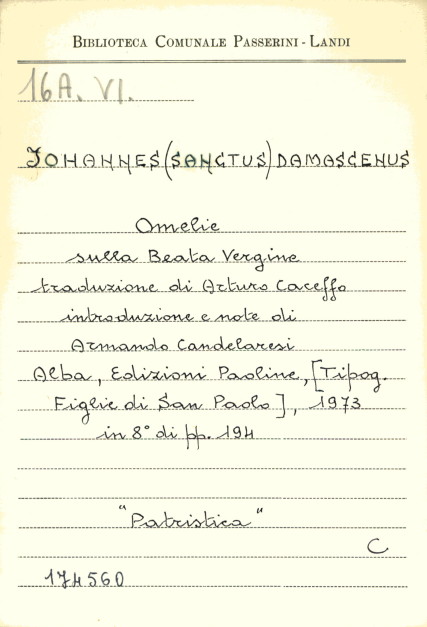 BIBLIOTECA COMUNALE PASSERINI - LANDI
16A. VI.
JOHANNES (SANCTUS) DAMASCENUS
Omelie
sulla Beata Vergine
traduzione di Arturo Caceffo
introduzione e note di
Armando Candelaresi
Alba, Edizioni Paoline, [Tipog.
Figlie di San Paolo], 1973
in 8° di pp. 194
"Patristica"
C
174560